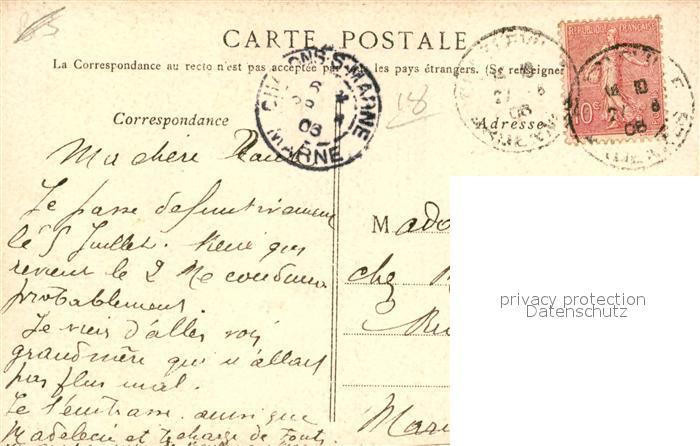 CARTE POSTALE
La Correspondance au recto n'est pas acceptée par les pays étrangers. (Se renseigner
RÉPUBLIQUE FRANÇAISE
10c
CHALONS-S-MARNE
MARNE
08
18
Correspondance
Adresse
Ma chère
Je passe définitivement
le 5 Juillet. René qui
revient le 2 me conduira
probablement.
Je viens d'aller voir
grandmère qui n'allait
pas plus mal.
Je t'embrasse ainsi que
Madeleine et te charge de tout
M
chez
privacy protection
Datenschutz